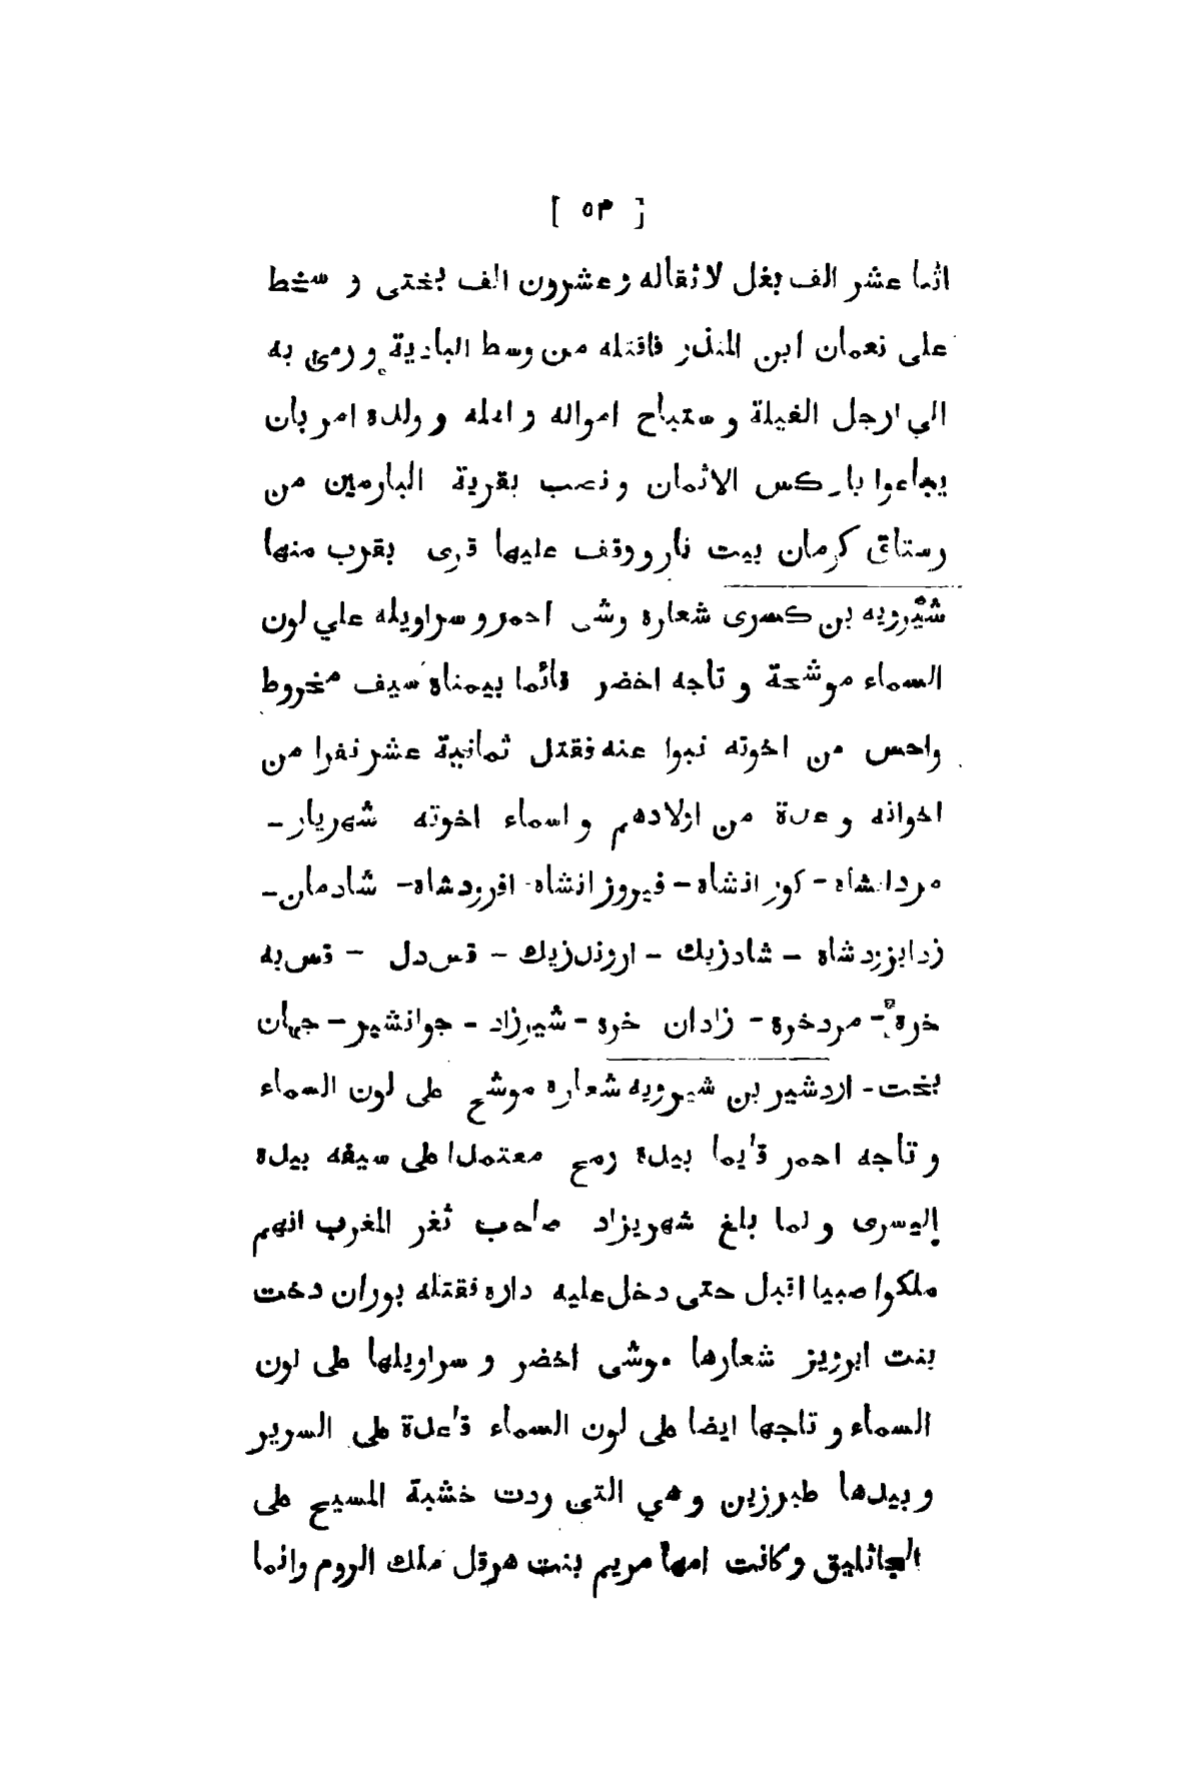 [ ٥٣ ]
اثنا عشر الف بغل لاثقاله وعشرون الف بختى و سخط
على نعمان ابن المنذر فاقتله من وسط البادية و رمى به
الي ارجل الغيلة و ستباح امواله و اهله و ولده امر بان
يباعوا باركس الاثمان و نصب بقرية البارمين من
رستاق كرمان بيت نار و وقف عليها قرى بقرب منها
شيرويه بن كسرى شعاره وشى احمر و سراويله علي لون
السماء موشحة و تاجه اخضر قائما بيمناه سيف مخروط
واحس من اخوته نبوا عنه فقتل ثمانية عشر نفرا من
اخوانه و عدة من اولادهم و اسماء اخوته شهريار -
مردانشاه - كورانشاه - فيروزانشاه - افرودشاه - شادمان -
زدابزردشاه - شادزيك - اروندزيك - قس دل - قس به
خره - مردخره - زادان خره - شيرزاد - جوانشير - جهان
بخت - اردشير بن شيرويه شعاره موشح على لون السماء
و تاجه احمر قايما بيده رمح معتمدا على سيفه بيده
اليسرى و لما بلغ شهريزاد صاحب ثغر المغرب انهم
ملكوا صبيا اقبل حتى دخل عليه داره فقتله بوران دخت
بنت ابرويز شعارها موشى اخضر و سراويلها على لون
السماء و تاجها ايضا على لون السماء قاعدة على السرير
و بيدها طبرزين و هي التى ردت خشبة المسيح على
الجاثليق و كانت امها مريم بنت هرقل ملك الروم وانما